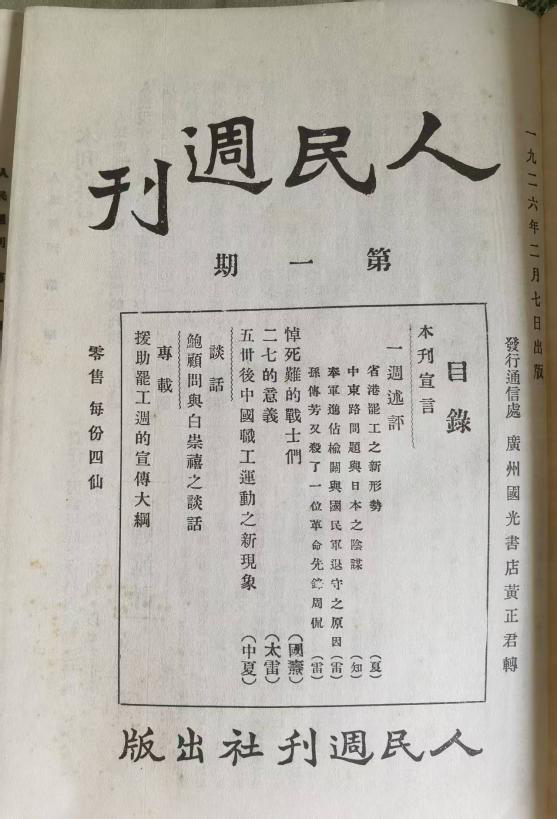 一九二六年二月七日出版
人民週刊
第一期
發行通信處 廣州國光書店黃正君轉
目錄
本刊宣言
一週述評
省港罷工之新形勢 (夏)
中東路問題與日本之陰謀 (知)
奉軍進佔榆關與國民軍退守之原因 (雷)
孫傳芳又殺了一位革命先鋒周侃 (雷)
悼死難的戰士們 (國燾)
二七的意義 (太雷)
五卅後中國職工運動之新現象 (中夏)
談話
鮑顧問與白崇禧之談話
專載
援助罷工週的宣傳大綱
零售 每份四仙
人民週刊社出版